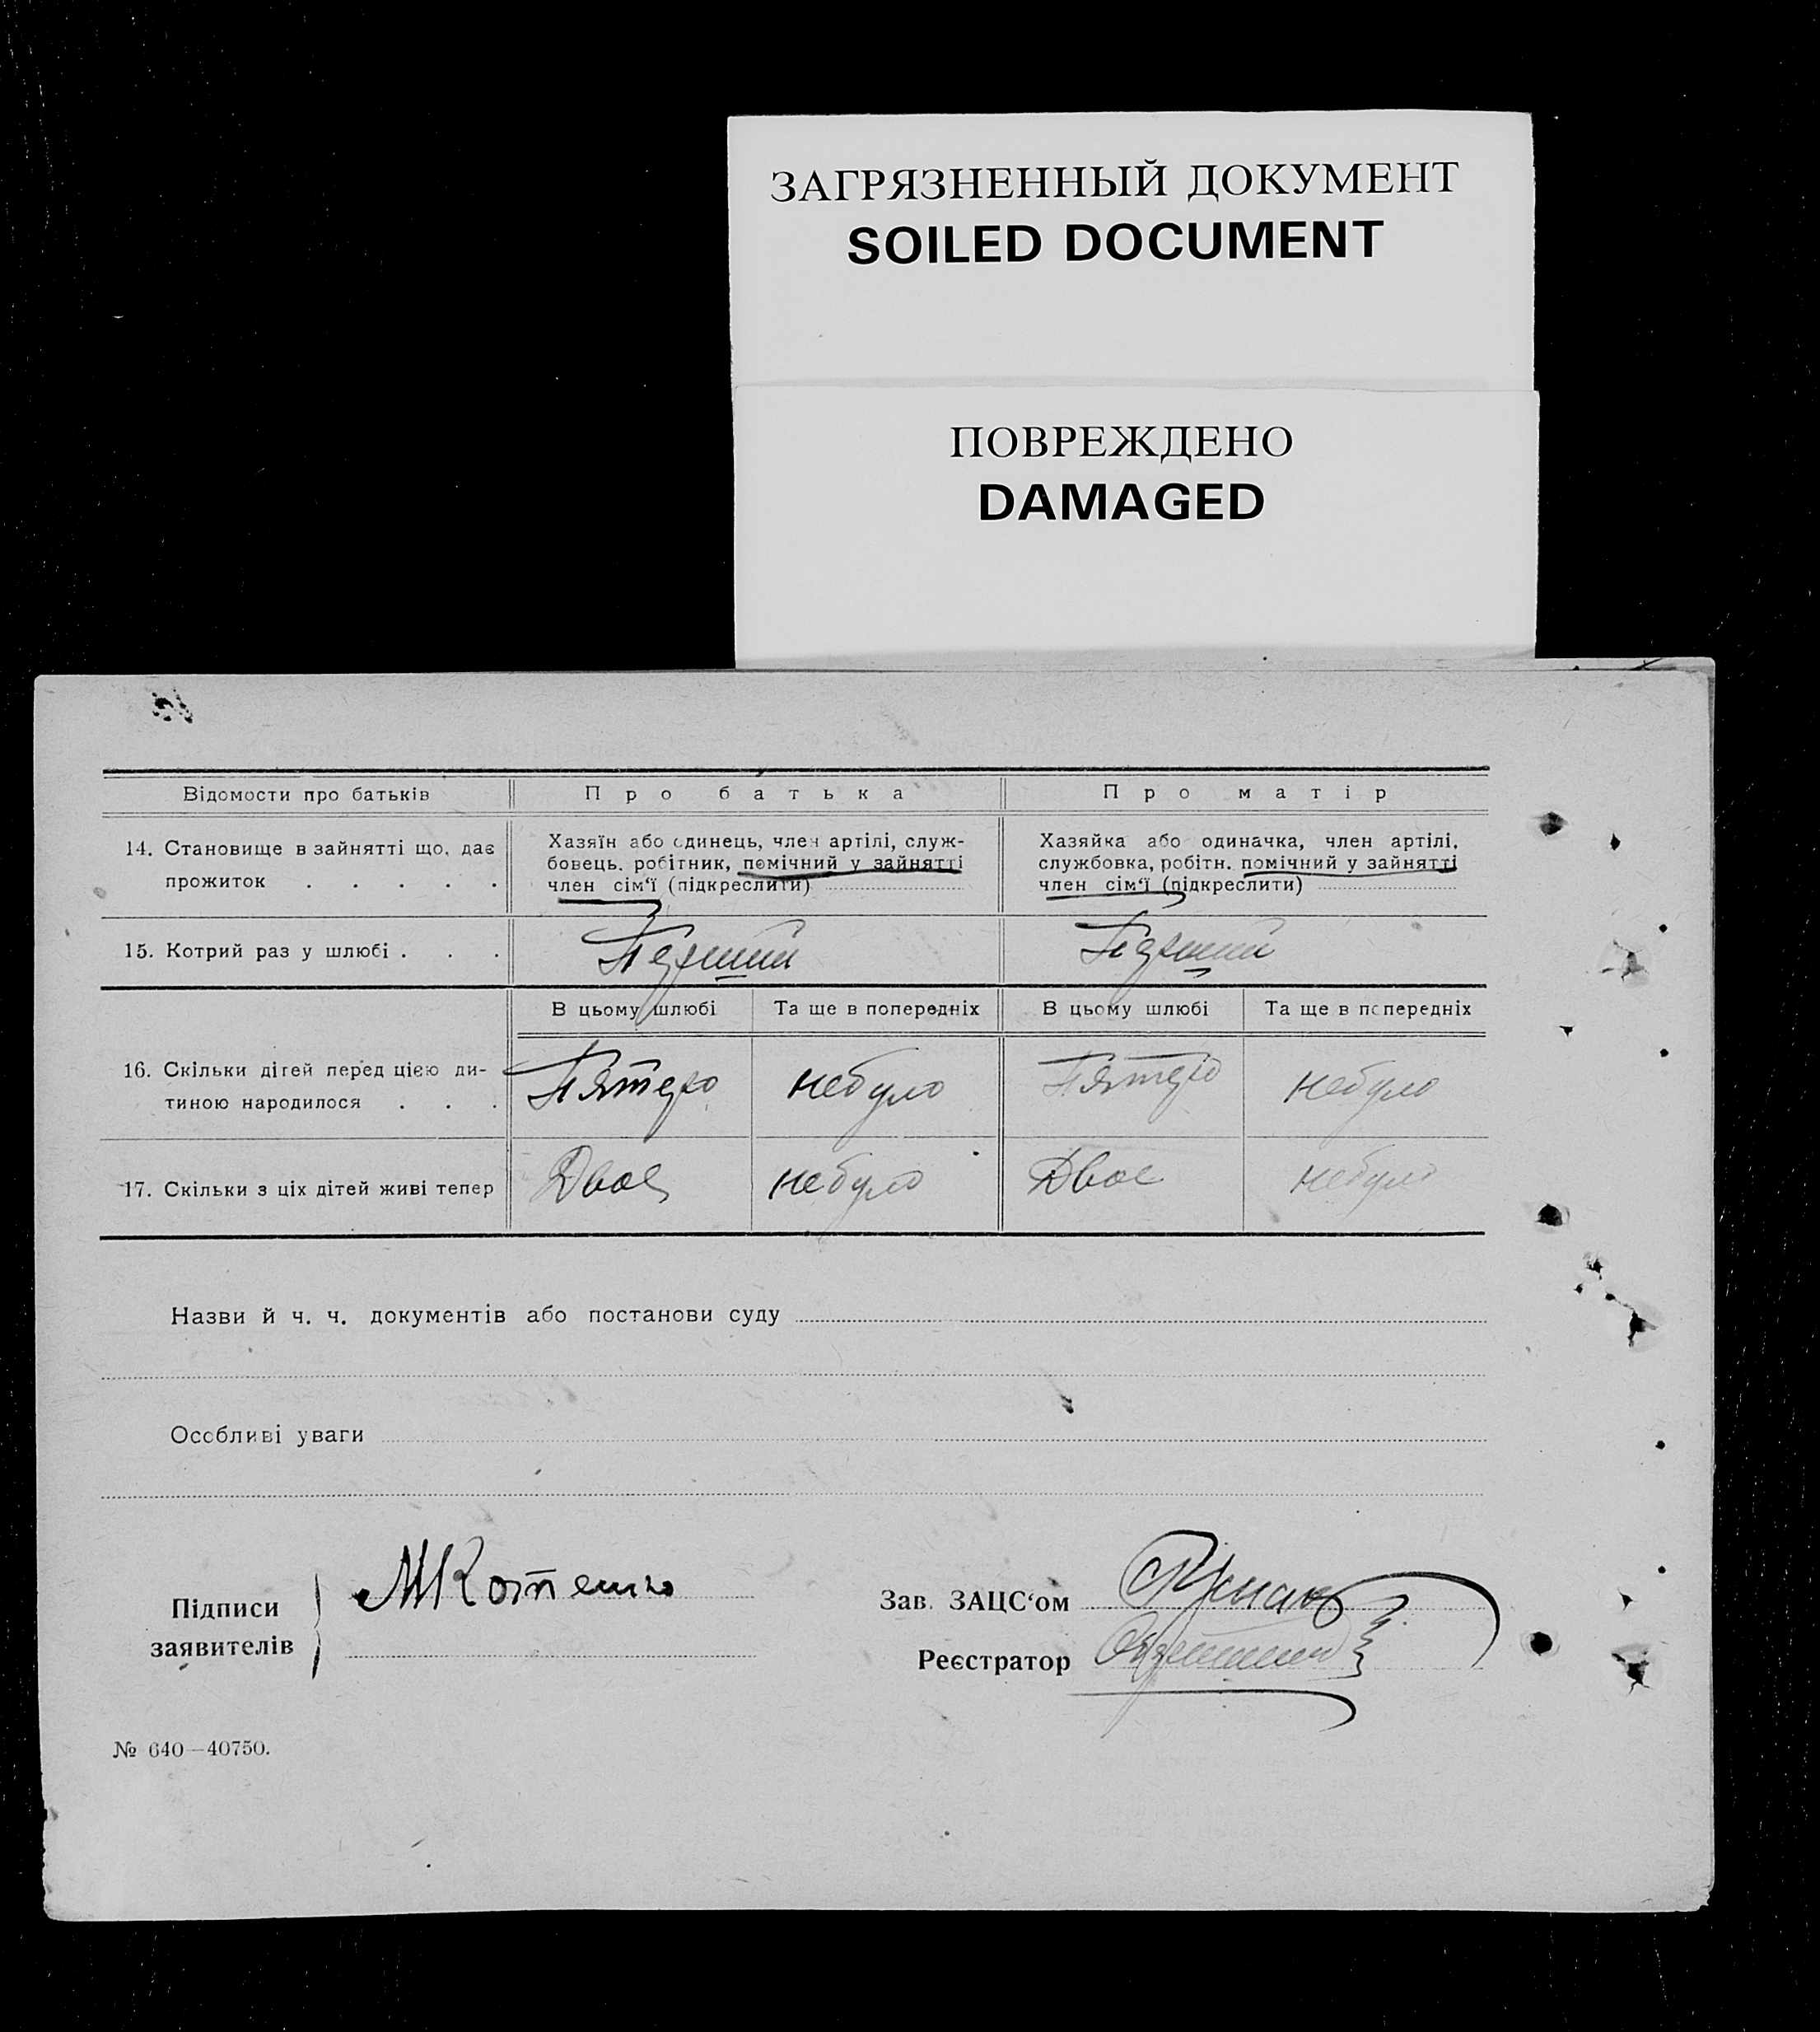 ЗАГРЯЗНЕННЫЙ ДОКУМЕНТ
SOILED DOCUMENT
ПОВРЕЖДЕНО
DAMAGED
Відомости про батьків
Про батька
Про матір
14. Становище в зайнятті що, дає
прожиток . . . . .
Хазяїн або єдинець, член артілі, служ-
бовець, робітник, помічний у зайнятті
член сім‘ї (підкреслити)
Хазяйка або одиначка, член артілі,
службовка, робітн. помічний у зайнятті
член сім‘ї (підкреслити)
15. Котрий раз у шлюбі . . .
Перший
Перший
В цьому шлюбі
Та ще в попередніх
В цьому шлюбі
Та ще в попередніх
16. Скільки дітей перед цією ди-
тиною народилося . . .
Пятеро
небуло
Пятеро
небуло
17. Скільки з ціх дітей живі тепер
Двоє
небуло
Двоє
небуло
Назви й ч. ч. документів або постанови суду
Особливі уваги
Підписи
заявителів
МКотенко
Зав. ЗАЦС‘ом
Реєстратор
№ 640—40750.